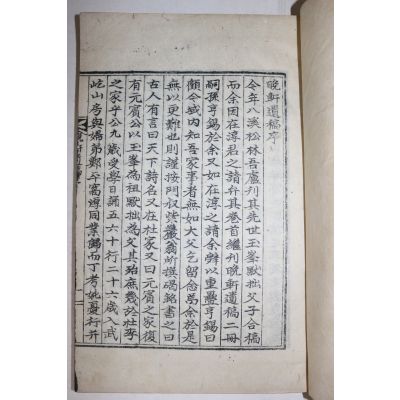 晩軒遺稿序
今年八溪松林吾盧列其先世玉峯默拙父子合稿
而余因在淳君之請弁其卷首繼刊晩軒遺稿二冊
嗣孫亨錫於余又如在淳之請余辭以重疊亨錫曰
顧今域内知吾家事者無如大父乞留念焉余於是
無以更難則謹按門叔農巖翁所撰碣銘書之曰
古人有言曰天下詩名又在杜家又曰元賓之家復
有元賓公以玉峯為祖默拙為父其殆庶幾於杜李
之家乎公九歲受學日誦五六十行二十六歲入武
屹山房與婦弟鄭平窩㷞同業歸而丁考妣憂行幷